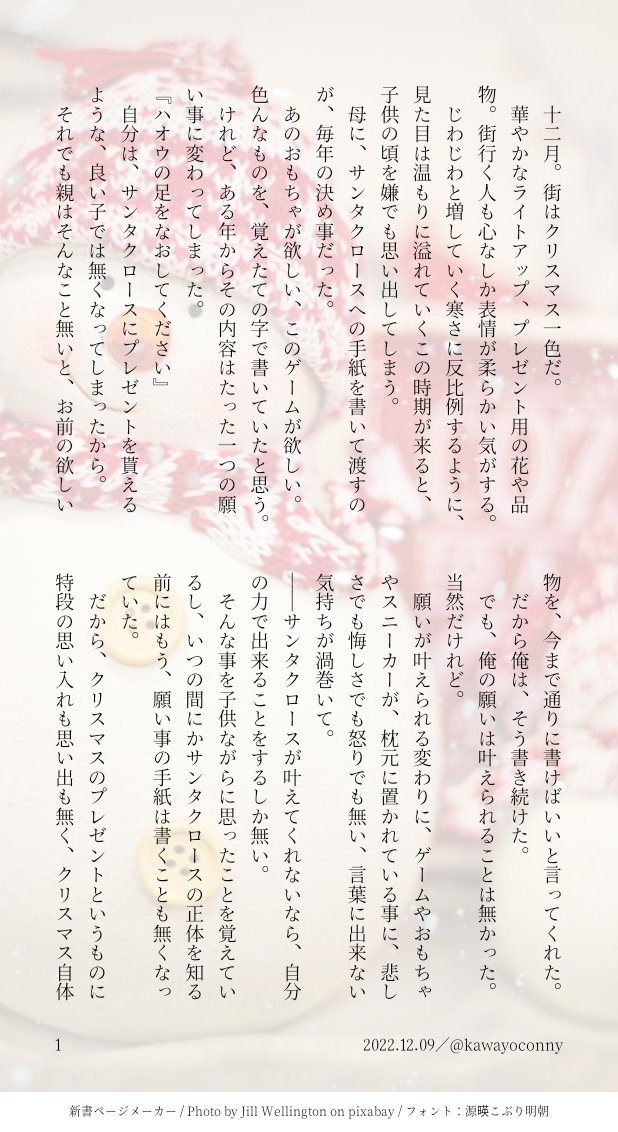 十二月。街はクリスマス一色だ。
華やかなライトアップ、プレゼント用の花や品
物。街行く人も心なしか表情が柔らかい気がする。
じわじわと増していく寒さに反比例するように、
見た目は温もりに溢れていくこの時期が来ると、
子供の頃を嫌でも思い出してしまう。
母に、サンタクロースへの手紙を書いて渡すの
が、毎年の決め事だった。
あのおもちゃが欲しい、このゲームが欲しい。
色んなものを、覚えたての字で書いていたと思う。
けれど、ある年からその内容はたった一つの願
い事に変わってしまった。
『ハオウの足をなおしてください』
自分は、サンタクロースにプレゼントを貰える
ような、良い子では無くなってしまったから。
それでも親はそんなこと無いと、お前の欲しい
物を、今まで通りに書けばいいと言ってくれた。
だから俺は、そう書き続けた。
でも、俺の願いは叶えられることは無かった。
当然だけれど。
願いが叶えられる変わりに、ゲームやおもちゃ
やスニーカーが、枕元に置かれている事に、悲し
さでも悔しさでも怒りでも無い、言葉に出来ない
気持ちが渦巻いて。
――サンタクロースが叶えてくれないなら、自分
の力で出来ることをするしか無い。
そんな事を子供ながらに思ったことを覚えてい
るし、いつの間にかサンタクロースの正体を知る
前にはもう、願い事の手紙は書くことも無くなっ
ていた。
だから、クリスマスのプレゼントというものに
特段の思い入れも思い出も無く、クリスマス自体
1
2022.12.09／@kawayoconny
新書ページメーカー / Photo by Jill Wellington on pixabay / フォント：源暎こぶり明朝